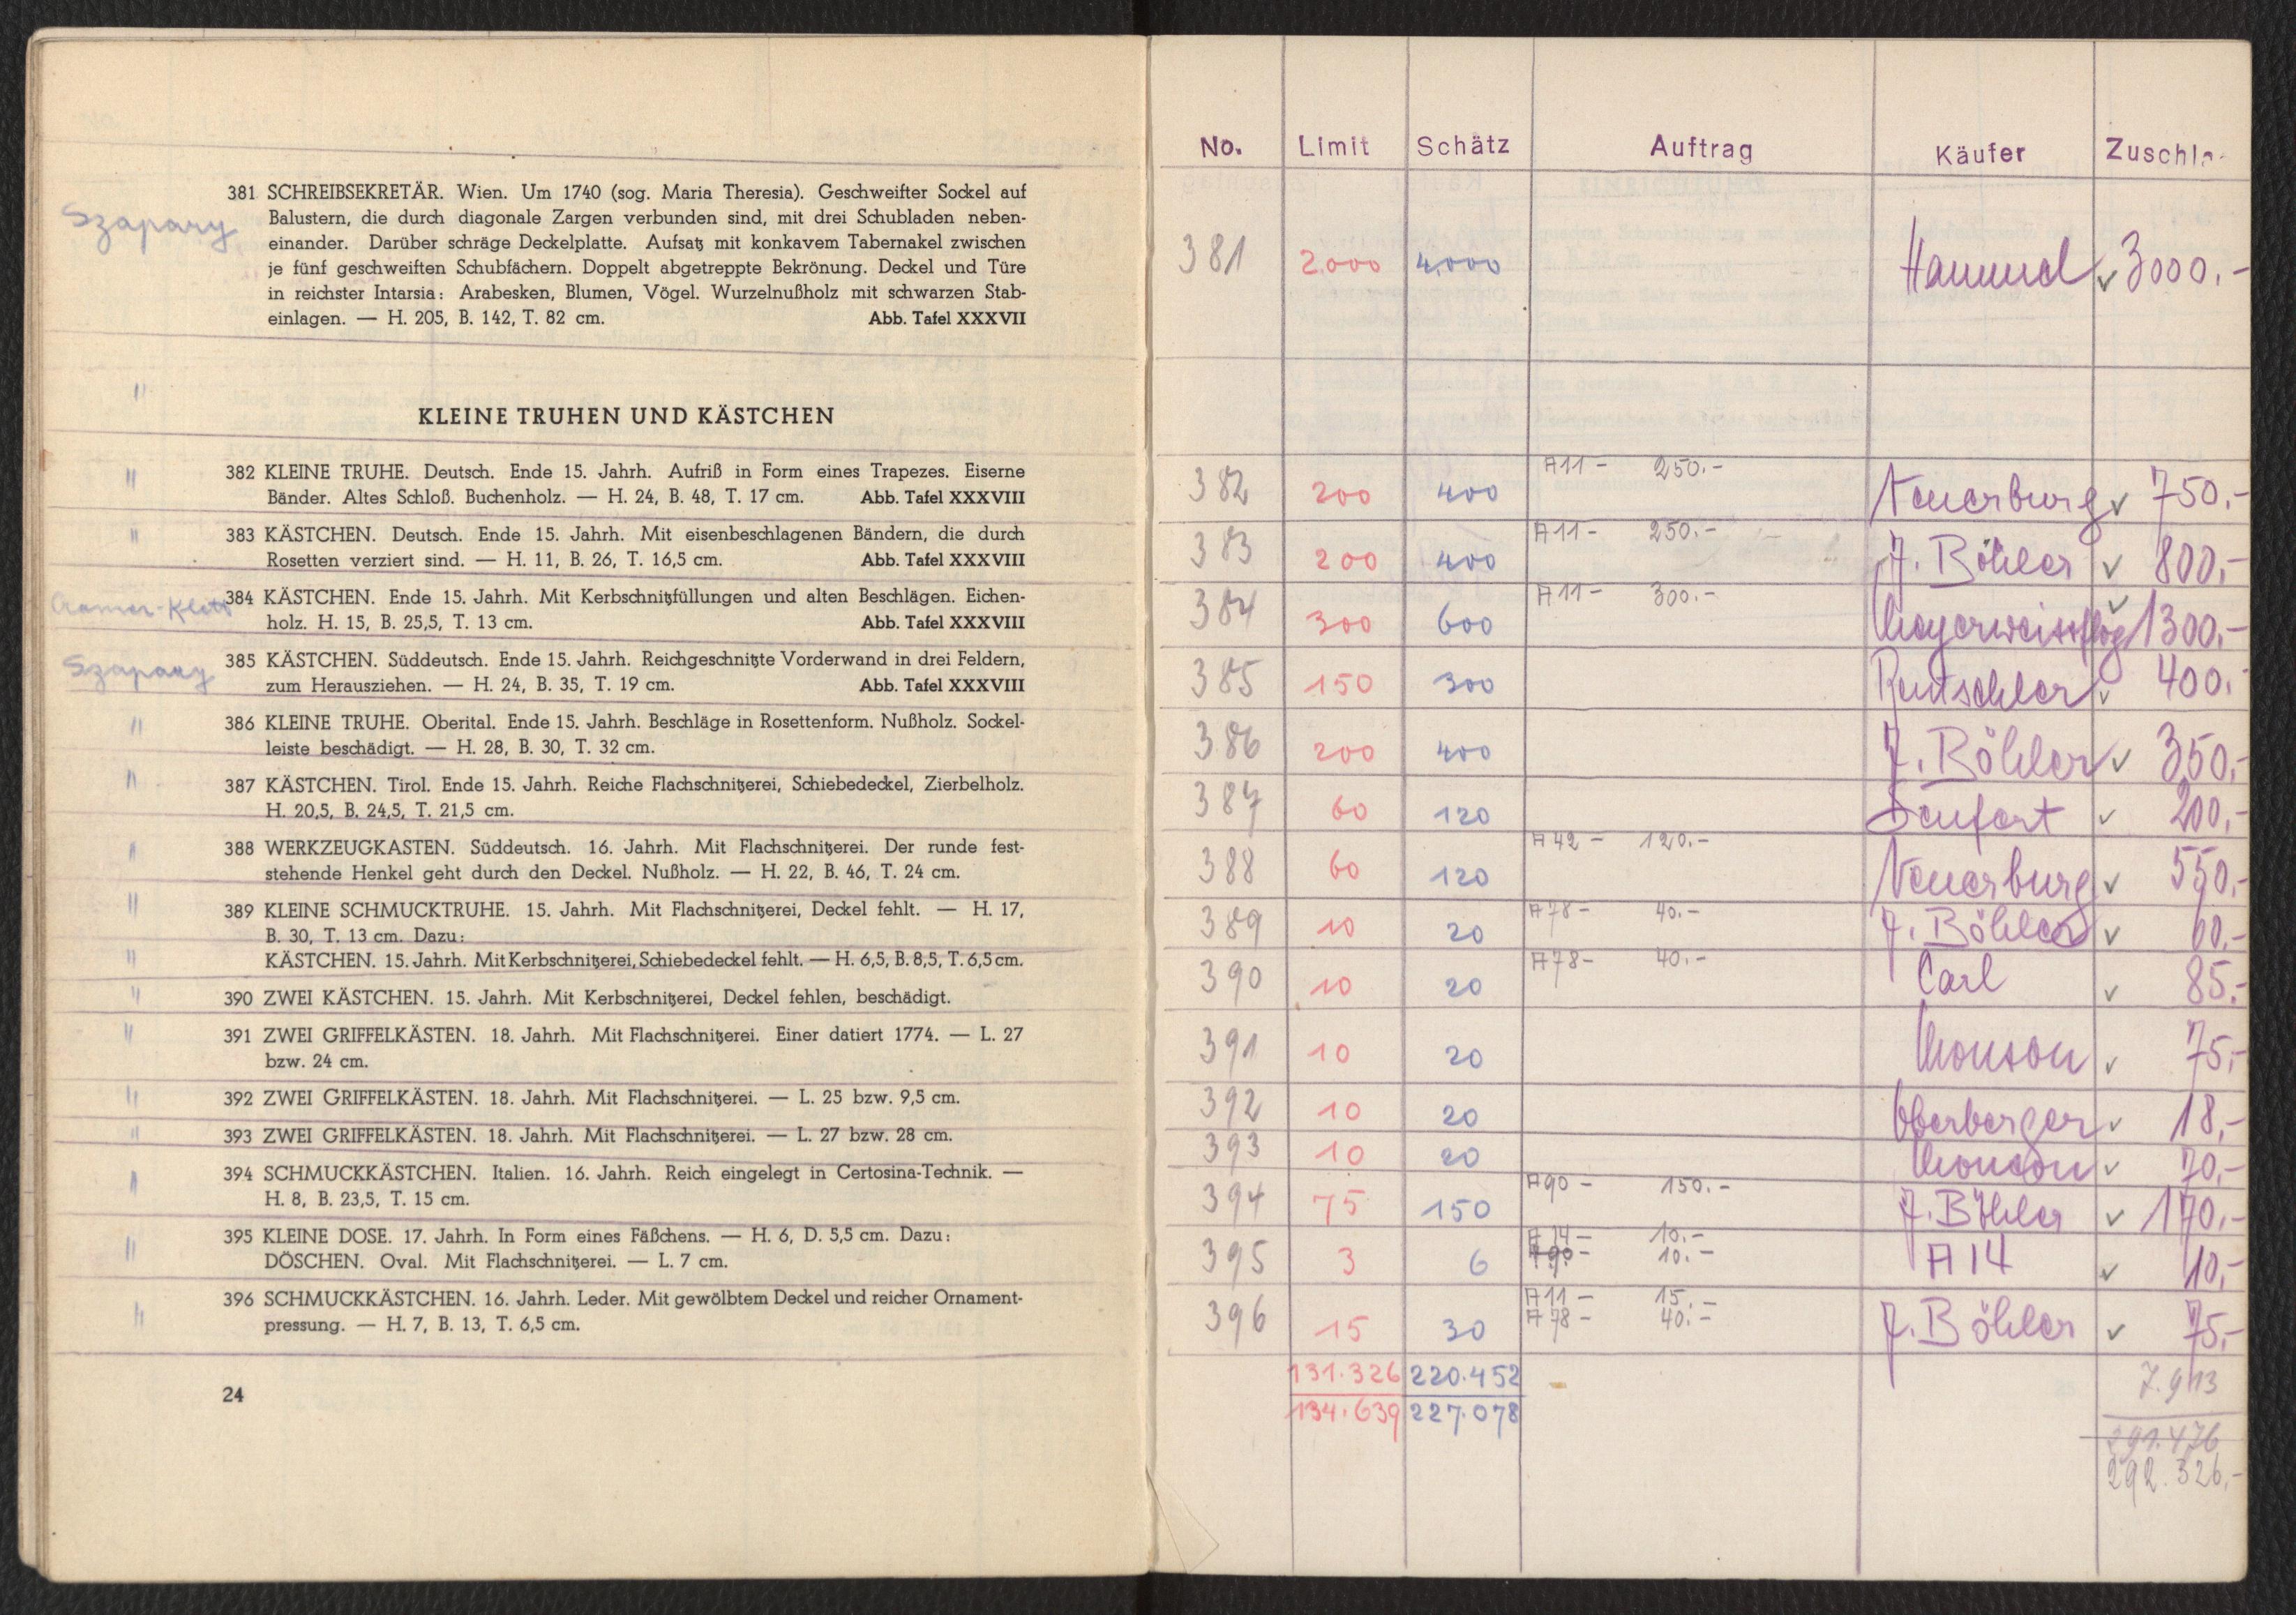 381 SCHREIBSEKRETÄR. Wien. Um 1740 (sog. Maria Theresia). Geschweifter Sockel auf
Szapary
Balustern, die durch diagonale Zargen verbunden sind, mit drei Schubladen neben-
einander. Darüber schräge Deckelplatte. Aufsatz mit konkavem Tabernakel zwischen
je fünf geschweiften Schubfächern. Doppelt abgetreppte Bekrönung. Deckel und Türe
in reichster Intarsia: Arabesken, Blumen, Vögel. Wurzelnußholz mit schwarzen Stab-
einlagen. — H. 205, B. 142, T. 82 cm. Abb. Tafel XXXVII
"
KLEINE TRUHEN UND KÄSTCHEN
382 KLEINE TRUHE. Deutsch. Ende 15. Jahrh. Aufriß in Form eines Trapezes. Eiserne
" Bänder. Altes Schloß. Buchenholz. — H. 24, B. 48, T. 17 cm. Abb. Tafel XXXVIII
" 383 KÄSTCHEN. Deutsch. Ende 15. Jahrh. Mit eisenbeschlagenen Bändern, die durch
Rosetten verziert sind. — H. 11, B. 26, T. 16,5 cm. Abb. Tafel XXXVIII
Cramer-Klett 384 KÄSTCHEN. Ende 15. Jahrh. Mit Kerbschnitzfüllungen und alten Beschlägen. Eichen-
holz. H. 15, B. 25,5, T. 13 cm. Abb. Tafel XXXVIII
Szapary 385 KÄSTCHEN. Süddeutsch. Ende 15. Jahrh. Reichgeschnitzte Vorderwand in drei Feldern,
zum Herausziehen. — H. 24, B. 35, T. 19 cm. Abb. Tafel XXXVIII
" 386 KLEINE TRUHE. Oberital. Ende 15. Jahrh. Beschläge in Rosettenform. Nußholz. Sockel-
leiste beschädigt. — H. 28, B. 30, T. 32 cm.
" 387 KÄSTCHEN. Tirol. Ende 15. Jahrh. Reiche Flachschnitzerei, Schiebedeckel, Zierbelholz.
H. 20,5, B. 24,5, T. 21,5 cm.
" 388 WERKZEUGKASTEN. Süddeutsch. 16. Jahrh. Mit Flachschnitzerei. Der runde fest-
stehende Henkel geht durch den Deckel. Nußholz. — H. 22, B. 46, T. 24 cm.
" 389 KLEINE SCHMUCKTRUHE. 15. Jahrh. Mit Flachschnitzerei, Deckel fehlt. — H. 17,
B. 30, T. 13 cm. Dazu:
" KÄSTCHEN. 15. Jahrh. Mit Kerbschnitzerei, Schiebedeckel fehlt. — H. 6,5, B. 8,5, T. 6,5 cm.
" 390 ZWEI KÄSTCHEN. 15. Jahrh. Mit Kerbschnitzerei, Deckel fehlen, beschädigt.
" 391 ZWEI GRIFFELKÄSTEN. 18. Jahrh. Mit Flachschnitzerei. Einer datiert 1774. — L. 27
bzw. 24 cm.
" 392 ZWEI GRIFFELKÄSTEN. 18. Jahrh. Mit Flachschnitzerei. — L. 25 bzw. 9,5 cm.
" 393 ZWEI GRIFFELKÄSTEN. 18. Jahrh. Mit Flachschnitzerei. — L. 27 bzw. 28 cm.
" 394 SCHMUCKKÄSTCHEN. Italien. 16. Jahrh. Reich eingelegt in Certosina-Technik. —
H. 8, B. 23,5, T. 15 cm.
" 395 KLEINE DOSE. 17. Jahrh. In Form eines Fäßchens. — H. 6, D. 5,5 cm. Dazu:
DÖSCHEN. Oval. Mit Flachschnitzerei. — L. 7 cm.
" 396 SCHMUCKKÄSTCHEN. 16. Jahrh. Leder. Mit gewölbtem Deckel und reicher Ornament-
pressung. — H. 7, B. 13, T. 6,5 cm.
24
No. Limit Schätz Auftrag Käufer Zuschla
381 2.000 4.000 ✓ 3000.-
382 200 400 A11 - 250.- Neuerburg ✓ 750.-
383 200 400 A11 - 250.- J. Böhler ✓ 800.-
384 300 600 A11 - 300.- ✓ 1300.-
385 150 300 Rentschler ✓ 400.-
386 200 400 J. Böhler ✓ 350.-
387 60 120 ✓ 200.-
388 60 120 A42 - 120.- Neuerburg ✓ 550.-
389 10 20 A78 - 40.- J. Böhler ✓ 60.-
390 10 20 A78 - 40.- Carl ✓ 85.-
391 10 20 Monson ✓ 75.-
392 10 20 Oberberger ✓ 18.-
393 10 20 Monson ✓ 70.-
394 75 150 A90 - 150.- J. Böhler ✓ 170.-
395 3 6 A14 - 10.- A14 ✓ 10.-
A90 - 10.-
396 15 30 A11 - 15.- J. Böhler ✓ 75.-
A78 - 40.-
131.326 220.452 7.913
134.639 227.078 291.476
292.326.-